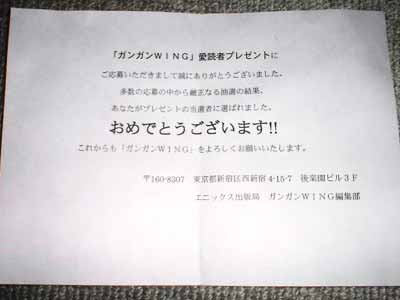 「ガンガンWING」愛読者プレゼントに
ご応募いただきまして誠にありがとうございました。
多数の応募の中から厳正なる抽選の結果、
あなたがプレゼントの当選者に選ばれました。
おめでとうございます!!
これからも「ガンガンWING」をよろしくお願いいたします。
〒160-8307　東京都新宿区西新宿4-15-7　後楽園ビル3F
エニックス出版局　ガンガンWING編集部